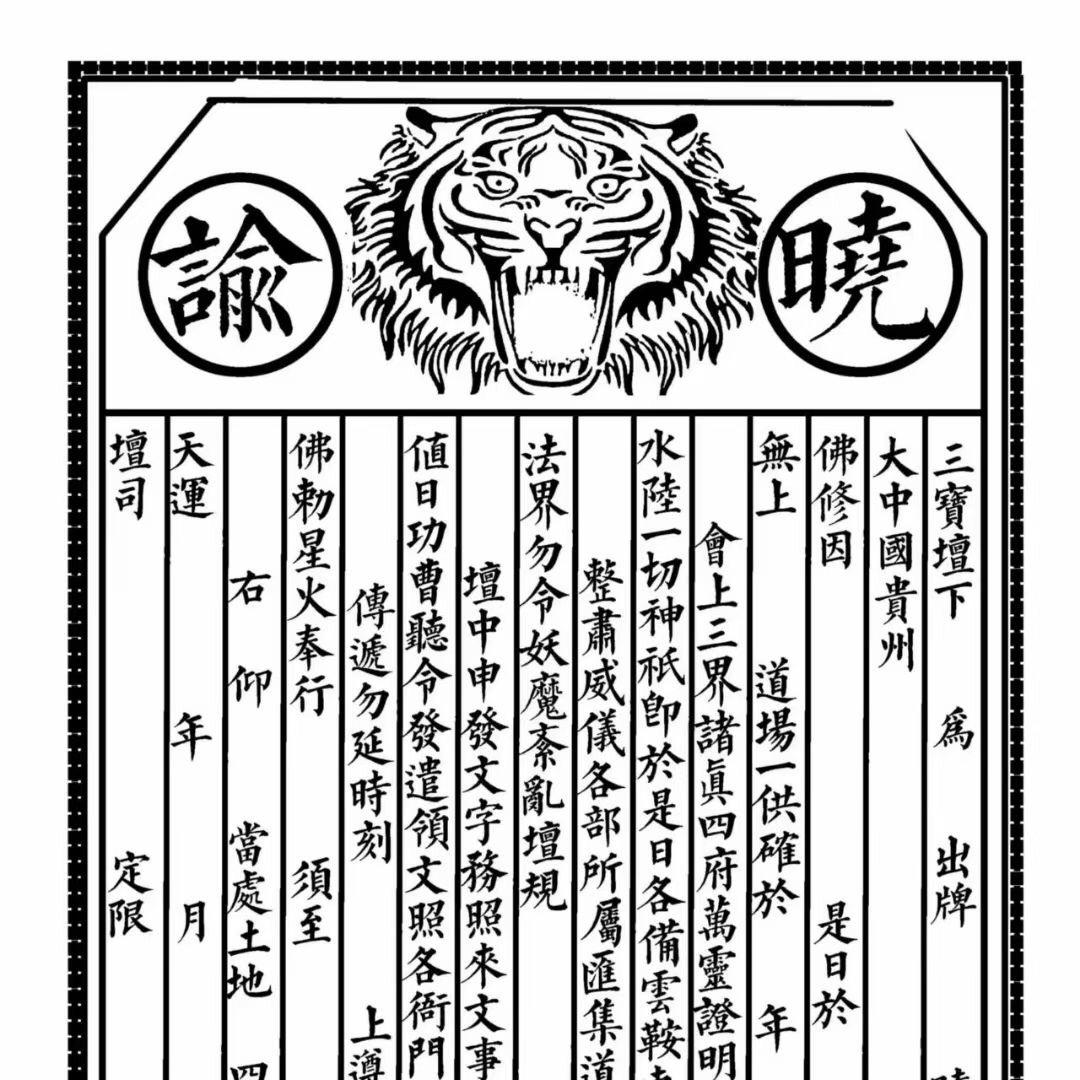 曉諭
三寶壇下 爲 出牌
大中國貴州
佛修因 是日於
無上 道場一供確於 年
會上三界諸眞四府萬靈證明
水陸一切神祇卽於是日各備雲鞍
整肅威儀各部所屬匯集道
法界勿令妖魔紊亂壇規
壇中申發文字務照來文事
値日功曹聽令發遣領文照各衙門
傳遞勿延時刻 上遵
佛勅星火奉行 須至
右仰 當處土地 四
天運 年 月
壇司 定限